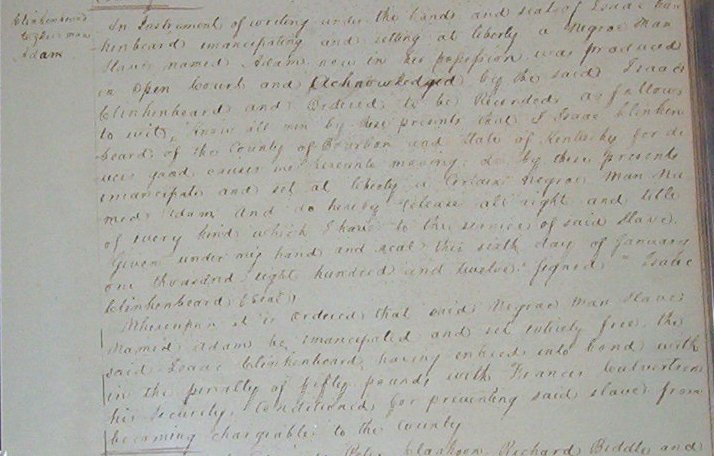 Clinkenbeard
to his man
Adam
An Instrument of writing under the hands and seals of Isaac Clin
kenbeard emancipating and setting at liberty a Negroe Man
Slave named Adam now in his possession was produced
in Open Court and Acknowledged by the said Isaac
Clinkenbeard and Ordered to be Recorded as follows
to wit, Know all men by these presents that I Isaac Clinken
beard of the County of Bourbon and State of Kentucky for di
vers good causes me hereunto moving do by these presents
emancipate and set at liberty a Certain Negroe Man Na
med Adam And do hereby release all right and title
of every kind which I have to the service of said Slave.
Given under my hand and seal this sixth day of January
one thousand eight hundred and twelve Signed Isaac
Clinkenbeard (Seal)
Whereupon it is Ordered that said Negroe Man Slave
Named Adam be emancipated and set entirely free the
said Isaac Clinkenbeard having entered into bond with
in the penalty of fifty pounds with Francis
his Security, Conditioned for preventing said slave from
becoming chargeable to the county
Clarkson Richard Biddle and